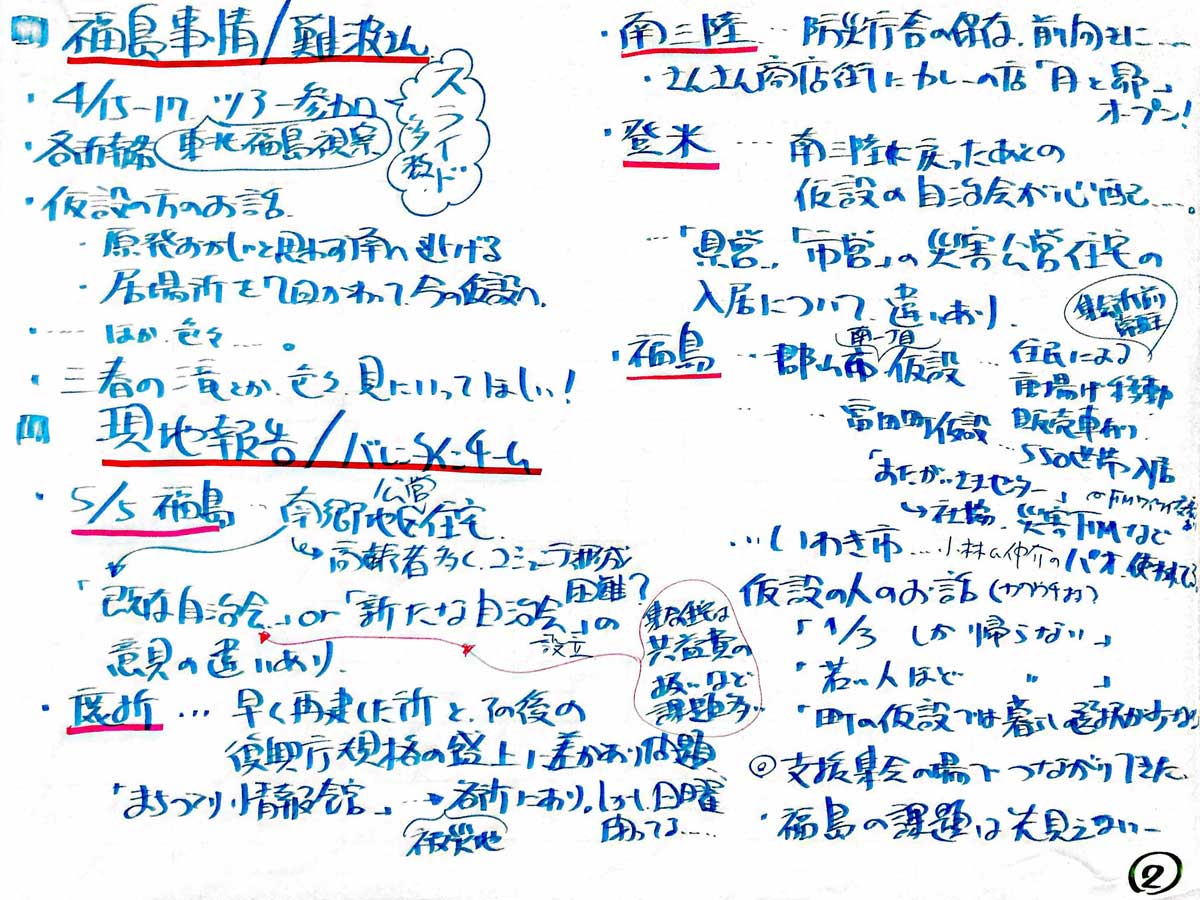 福島事情/難波さん
・4/15-17 ツアー参加
スライド多数
・各所訪
東北福島視察
・仮設の方のお話
・原発おかしいと思わず南へ逃げる
・居場所を7回かわって今の仮設へ
・…… ほか 色々……。
・三春の滝とか、色々見にいってほしい!
現地報告/バレーヌチーム
・5/5 福島 … 南郷地区住宅
公営
高齢者多く、コミュニティ形成困難?
「既存自治会」or「新たな自治会」の
設立
意見の違いあり、
集合住宅は
共益費の
扱いなど
課題多い
・ … 早く再建した所と、その後の
復興庁規格の嵩上に差があり問題
「まちづくり情報会館」 → 各所にあり、しかし日曜
被災地
困ってる……
・南三陸 … 防災庁舎の保存、前向きに……
・さんさん商店街にカレーの店「月と昴」
オープン!
・登米 … 南三陸に戻ったあとの
仮設の自治会が心配……。
…「県営」「市営」の災害公営住宅の
入居について、違いあり、
集会所前
・福島 … 郡山市 仮設 … 住民による
南一丁目
… 富田町仮設 販売車
550世帯入居
「おたがいさまセンター」
社協 災害FMなど
…いわき市 … 小林さん仲介のパオ、使われてる
仮設の人のお話
「1/3 しか帰らない」
「若い人ほど 〃 」
「町の仮設では暮しの
◎支援集会の場で つながりできた
・福島の課題は先見えないー
②